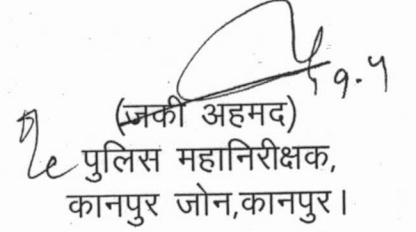 (जकी अहमद)
पुलिस महानिरीक्षक,
कानपुर जोन,कानपुर।